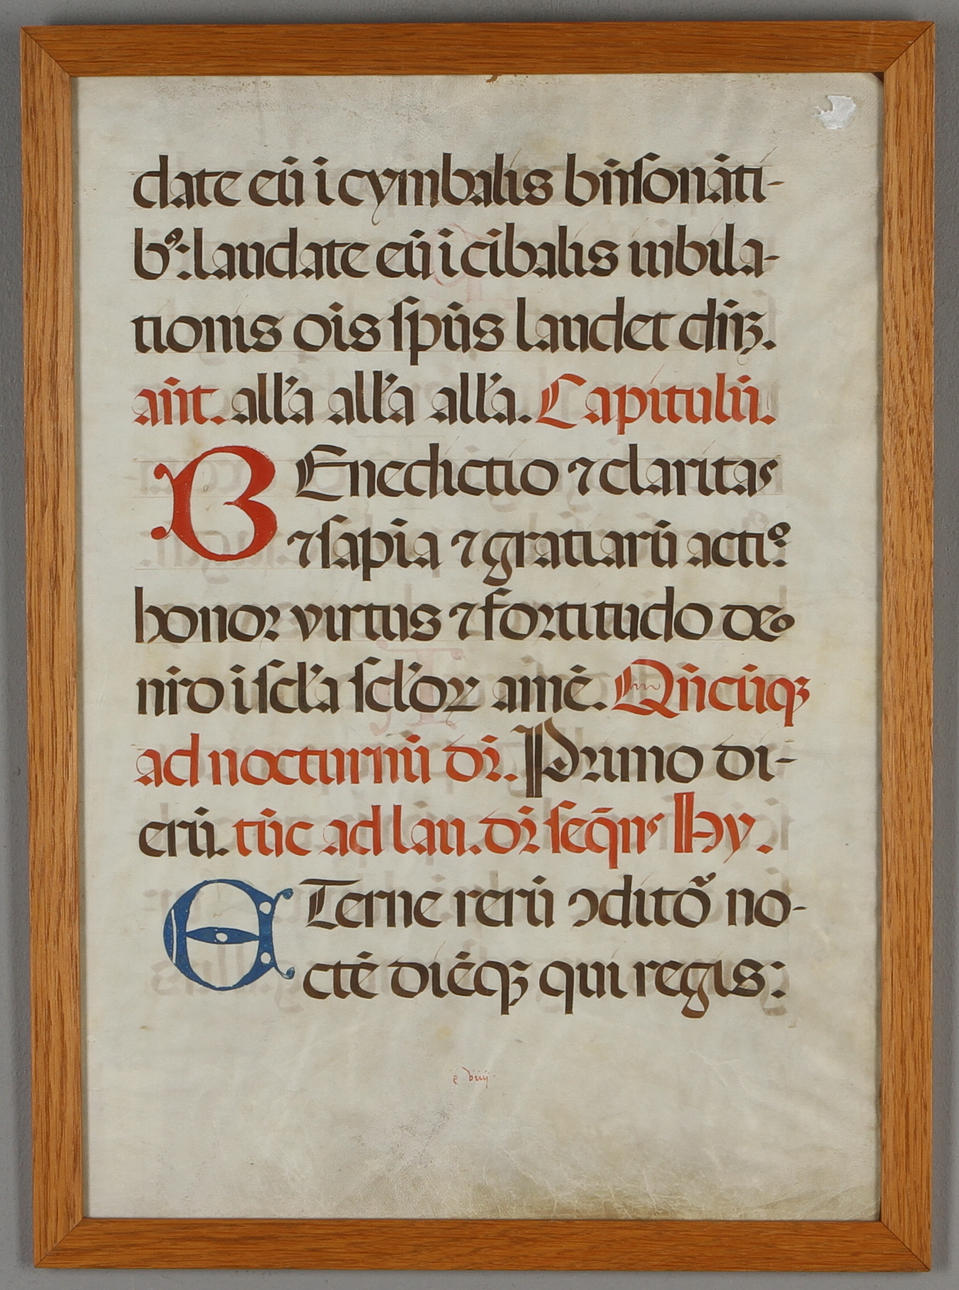 date eū ī cymbalis bn̄sonāti-
bꝰ: laudate eū ī cībalis iubila-
tionis oīs sp̄us laudet dn̄ꝫ.
an̄t. all'a all'a all'a. Capitulū.
BEnedictio ⁊ claritas
⁊ sapīa ⁊ gratiarū actiº
honor virtus ⁊ fortitudo deo
nr̄o ī scl'a scl'oꝝ amē. Qn̄cūqꝫ
ad nocturnū dr̄. Primo di-
erū. tūc ad lau. dr̄ seq̄ns Hy.
ETerne rerū ↄditoᷣ no-
ctē diēqꝫ qui regis: